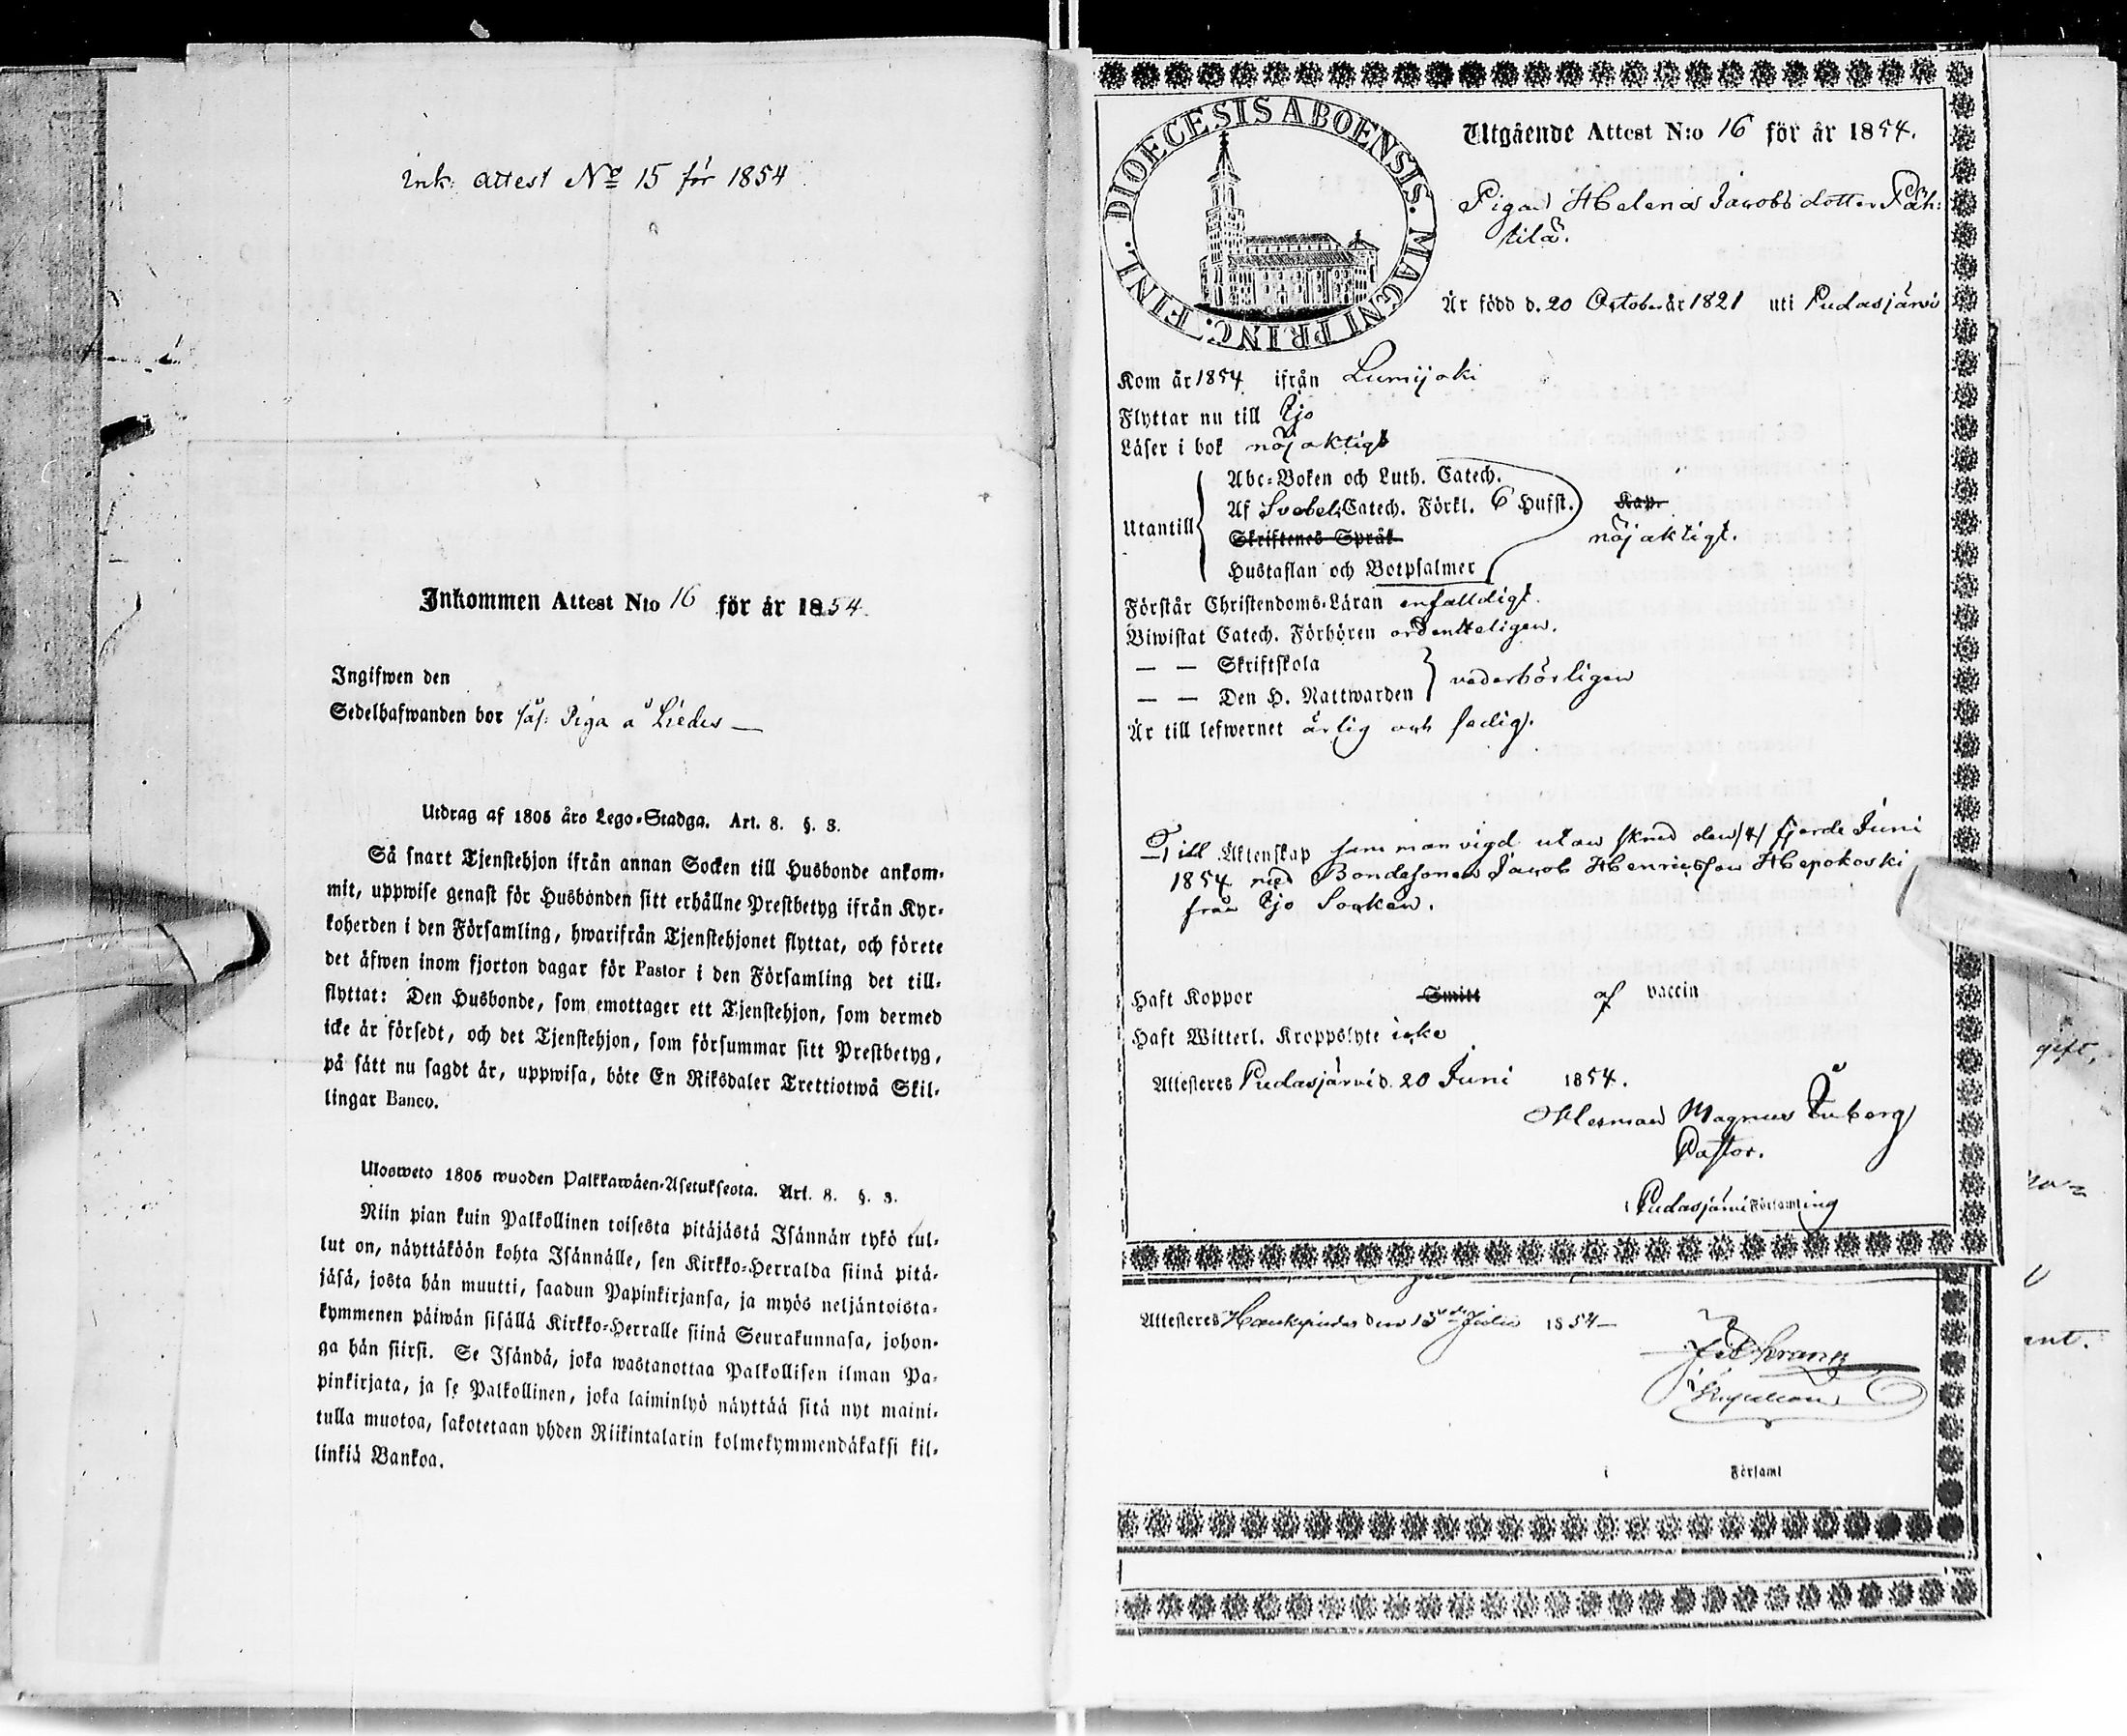 Ink. attest No 15 för 1854
Inkommen Attest N:o 16 för år 1854.
Ingifwen den
Sedelhafwanden bor såş: Piga å Liedes —
Utdrag af 1805 års Lego-Stadga. Art. 8. §. 3.
Så snart Tjenstehjon ifrån annan Socken till Husbonde ankom-
mit, uppwise genast för Husbonden sitt erhållne Prestbetyg ifrån Kyr-
koherden i den Församling, hwarifrån Tjenstehjonet flyttat, och förete
det äfwen inom fjorton dagar för Pastor i den Församling det till-
flyttat: Den Husbonde, som emottager ett Tjenstehjon, som dermed
icke är försedt, och det Tjenstehjon, som försummar sitt Prestbetyg,
på sätt nu sagdt är, uppwisa, böte En Riksdaler Trettiotwå Skil-
lingar Banco.
Ulosweto 1805 wuoden Palkkawäen-Asetuksesta. Art. 8. §. 3.
Niin pian kuin Palkollinen toisesta pitäjästä Isännän tykö tul-
lut on, näyttäköön kohta Isännälle, sen Kirkko-Herralda siinä pitä-
jäsä, josta hän muutti, saadun Papinkirjansa, ja myös neljäntoista-
kymmenen päiwän sisällä Kirkko-Herralle siinä Seurakunnasa, johon-
ga hän siirsi. Se Isändä, joka wastanottaa Palkollisen ilman Pa-
pinkirjata, ja se Palkollinen, joka laiminlyö näyttää sitä nyt maini-
tulla muotoa, sakotetaan yhden Riikintalarin kolmekymmendäkaksi kil-
linkiä Bankoa.
DIOECESIS ABOENSIS. MAGNI PRINC. FINL.
Utgående Attest N:o 16 för år 1854.
Pigan Helena Jacobsdotter Päh:
tilä.
Är född d. 20 October år 1821 uti Pudasjärvi
Kom år 1854 ifrån Lumijoki
Flyttar nu till Ijo
Läser i bok nöjaktigt
Utantill
Abc-Boken och Luth. Catech.
Af Svebel: Catech. Förkl. 6 Hufst. Kap.
Skriftenes Språk nöjaktigt.
Hustaflan och Botpsalmer
Förstår Christendoms-Läran enfalldigt.
Biwistat Catech. Förhören ordenteligen.
— — Skriftskola
— — Den H. Nattwarden vederbörligen
Är till lefwernet ärlig och sedig.
Till Äktenskap samman vigd utan skrud den /4/ fjerde Juni
1854 med Bondesonen Jacob Henricsson Hepokoski
från Ijo Socken.
Haft Koppor Smitt af vaccin
Haft Witterl. Kroppslyte icke
Attesteres Pudasjärvi d. 20 Juni 1854.
Herman Magnus
Pastor.
i Pudasjärvi Församling
Attesteres Haukipudas den 15de Julii 1854—
i Församl
gift,